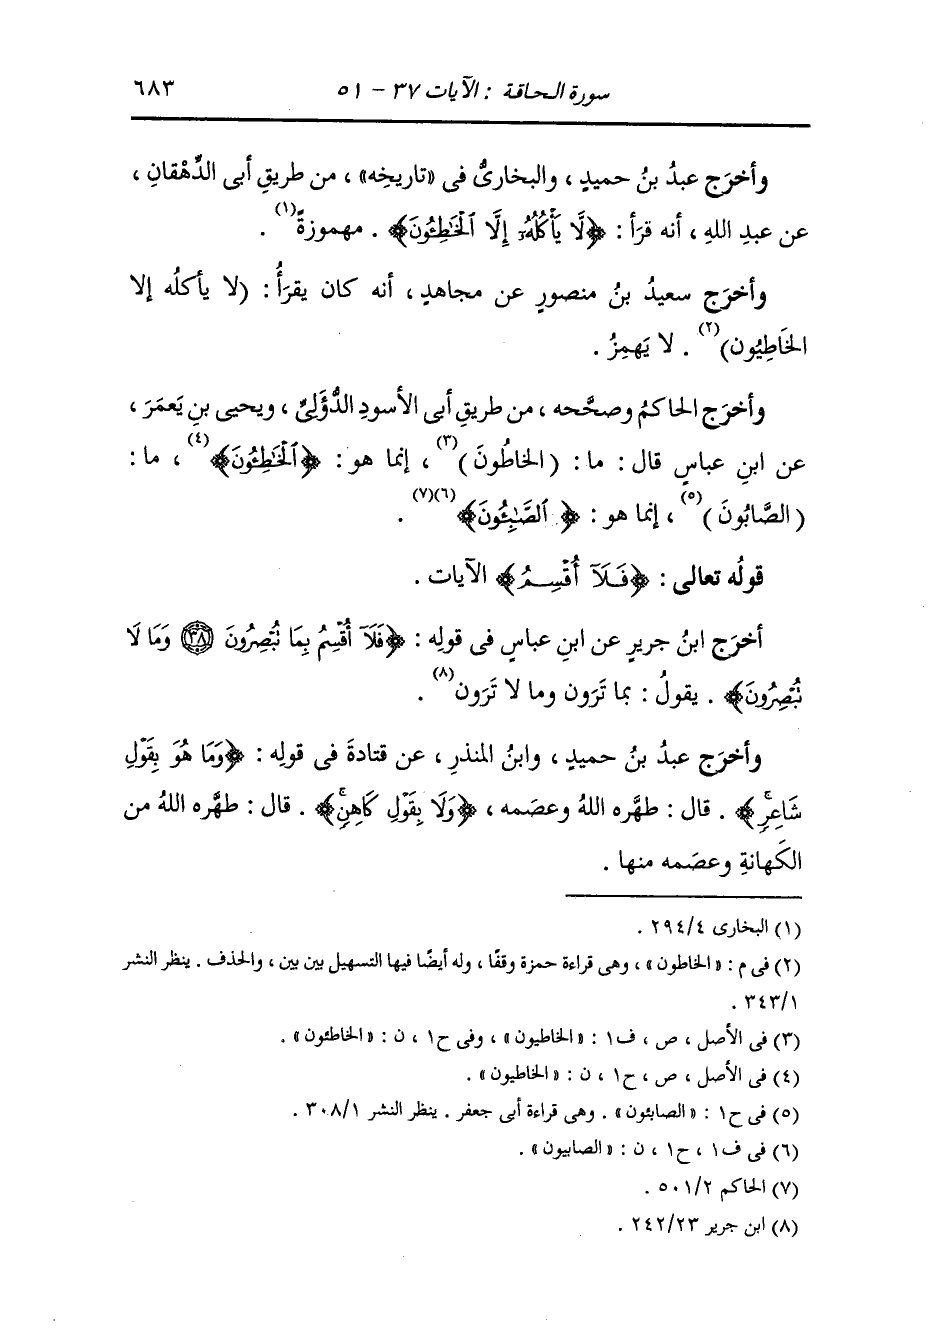 سورة الحاقة : الآيات ٣٧ - ٥١ ٦٨٣
وأخرَج عبدُ بنُ حميدٍ ، والبخارىُّ فى «تاريخِه» ، من طريقِ أبى الدِّهْقانِ ،
عن عبدِ اللهِ ، أنه قرَأ : ﴿لَّا يَأْكُلُهُۥٓ إِلَّا ٱلْخَٰطِـُٔونَ﴾ . مهموزةً(١) .
وأخرَج سعيدُ بنُ منصورٍ عن مجاهدٍ ، أنه كان يقرَأُ : (لا يأكلُه إلا
الخَاطِيُون)(٢) . لا يَهمِزُ .
وأخرَج الحاكمُ وصحَّحه ، من طريقِ أبى الأسودِ الدُّؤَلِىِّ ، ويحيى بنِ يَعمَرَ ،
عن ابنِ عباسٍ قال : ما : (الخاطُونَ)(٣) ، إنما هو : ﴿ٱلْخَٰطِـُٔونَ﴾(٤) ، ما :
(الصَّابُونَ)(٥) ، إنما هو : ﴿ٱلصَّٰبِـُٔونَ﴾(٦)(٧) .
قولُه تعالى : ﴿فَلَآ أُقْسِمُ﴾ الآيات .
أخرَج ابنُ جريرٍ عن ابنِ عباسٍ فى قولِه : ﴿فَلَآ أُقْسِمُ بِمَا تُبْصِرُونَ ٣٨ وَمَا لَا
تُبْصِرُونَ﴾ . يقولُ : بما تَرَون وما لا تَرَون(٨) .
وأخرَج عبدُ بنُ حميدٍ ، وابنُ المنذرِ ، عن قتادةَ فى قولِه : ﴿وَمَا هُوَ بِقَوْلِ
شَاعِرٍۚ﴾ . قال : طهَّره اللهُ وعصَمه ، ﴿وَلَا بِقَوْلِ كَاهِنٍۚ﴾ . قال : طهَّره اللهُ من
الكَهانةِ وعصَمه منها .
(١) البخارى ٢٩٤/٤ .
(٢) فى م : « الخاطون » ، وهى قراءة حمزة وقفًا ، وله أيضًا فيها التسهيل بين بين ، والحذف . ينظر النشر
٣٤٣/١ .
(٣) فى الأصل ، ص ، ف١ : « الخاطيون » ، وفى ح١ ، ن : « الخاطئون » .
(٤) فى الأصل ، ص ، ح١ ، ن : « الخاطيون » .
(٥) فى ح١ : « الصابئون » . وهى قراءة أبى جعفر . ينظر النشر ٣٠٨/١ .
(٦) فى ف١ ، ح١ ، ن : « الصابيون » .
(٧) الحاكم ٥٠١/٢ .
(٨) ابن جرير ٢٤٢/٢٣ .